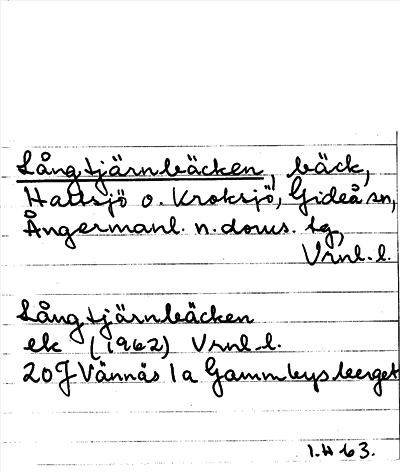 Långtjärnbäcken, bäck,
Hattsjö o. Kroksjö, Gideå sn,
Ångermanl. n. doms. tg,
Vrnl. l.
Långtjärnbäcken
ek (1962) Vrnl. l.
20J Vännäs 1a Gammbysberget
1.4 63.